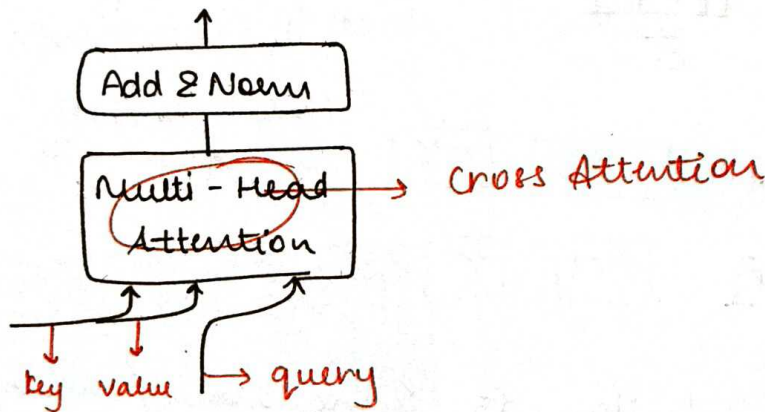 Add & Norm
Multi - Head
Attention
Cross Attention
key value
query